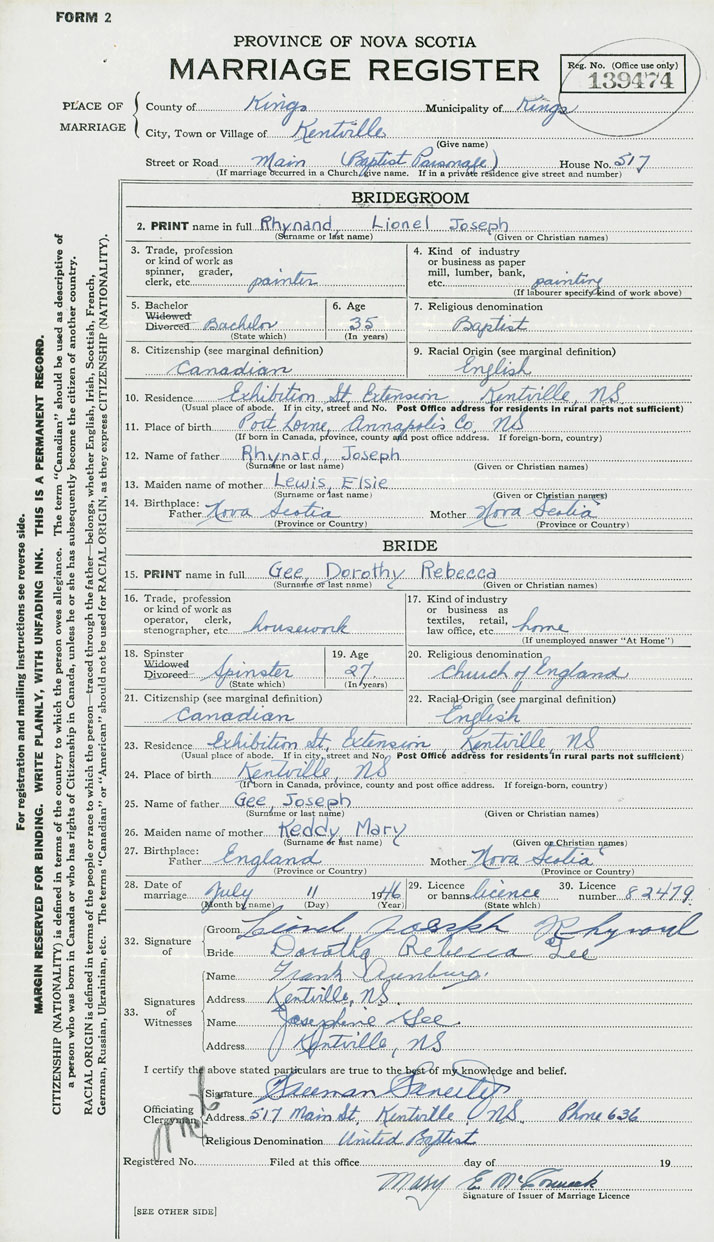 FORM 2
PROVINCE OF NOVA SCOTIA
MARRIAGE REGISTER
Reg. No. (Office use only)
139474
PLACE OF MARRIAGE
County of Kings Municipality of Kings
City, Town or Village of Kentville
(Give name)
Street or Road Main (Baptist Parsonage) House No. 517
(If marriage occurred in a Church, give name. If in a private residence give street and number)
BRIDEGROOM
2. PRINT name in full Rhynard, Lionel Joseph
(Surname or last name) (Given or Christian names)
3. Trade, profession or kind of work as spinner, grader, clerk, etc. painter
4. Kind of industry or business as paper mill, lumber, bank, etc. painting
(If labourer specify kind of work above)
5. Bachelor Widowed Divorced Bachelor
(State which)
6. Age 35
(In years)
7. Religious denomination
Baptist
8. Citizenship (see marginal definition)
Canadian
9. Racial Origin (see marginal definition)
English
10. Residence Exhibition St. Extension, Kentville, NS
(Usual place of abode. If in city, street and No. Post Office address for residents in rural parts not sufficient)
11. Place of birth Port Lorne, Annapolis Co. NS
(If born in Canada, province, county and post office address. If foreign-born, country)
12. Name of father Rhynard, Joseph
(Surname or last name) (Given or Christian names)
13. Maiden name of mother Lewis, Elsie
(Surname or last name) (Given or Christian names)
14. Birthplace: Father Nova Scotia Mother Nova Scotia
(Province or Country) (Province or Country)
BRIDE
15. PRINT name in full Gee, Dorothy Rebecca
(Surname or last name) (Given or Christian names)
16. Trade, profession or kind of work as operator, clerk, stenographer, etc. housework
17. Kind of industry or business as textiles, retail, law office, etc. home
(If unemployed answer "At Home")
18. Spinster Widowed Divorced Spinster
(State which)
19. Age 27
(In years)
20. Religious denomination
Church of England
21. Citizenship (see marginal definition)
Canadian
22. Racial Origin (see marginal definition)
English
23. Residence Exhibition St. Extension, Kentville, NS
(Usual place of abode. If in city, street and No. Post Office address for residents in rural parts not sufficient)
24. Place of birth Kentville, NS
(If born in Canada, province, county and post office address. If foreign-born, country)
25. Name of father Gee, Joseph
(Surname or last name) (Given or Christian names)
26. Maiden name of mother Keddy, Mary
(Surname or last name) (Given or Christian names)
27. Birthplace: Father England Mother Nova Scotia
(Province or Country) (Province or Country)
28. Date of marriage July 11 1946
(Month by name) (Day) (Year)
29. Licence or banns licence
(State which)
30. Licence number 82479
32. Signature of
Groom Lionel Joseph Rhynard
Bride Dorothy Rebecca Gee
33. Signatures of Witnesses
Name Frank
Address Kentville, NS.
Name Josephine Gee
Address Kentville, NS
I certify the above stated particulars are true to the best of my knowledge and belief.
Officiating Clergyman
Signature Freeman
Address 517 Main St, Kentville, NS. Phone 636
Religious Denomination United Baptist
Registered No. Filed at this office day of 19
Mary E. McCormick
Signature of Issuer of Marriage Licence
[SEE OTHER SIDE]
For registration and mailing instructions see reverse side.
MARGIN RESERVED FOR BINDING. WRITE PLAINLY, WITH UNFADING INK. THIS IS A PERMANENT RECORD.
CITIZENSHIP (NATIONALITY) is defined in terms of the country to which the person owes allegiance. The term "Canadian" should be used as descriptive of
a person who was born in Canada or who has rights of Citizenship in Canada, unless he or she has subsequently become the citizen of another country.
RACIAL ORIGIN is defined in terms of the people or race to which the person—traced through the father—belongs, whether English, Irish, Scottish, French,
German, Russian, Ukrainian, etc. The terms "Canadian" or "American" should not be used for RACIAL ORIGIN, as they express CITIZENSHIP (NATIONALITY).